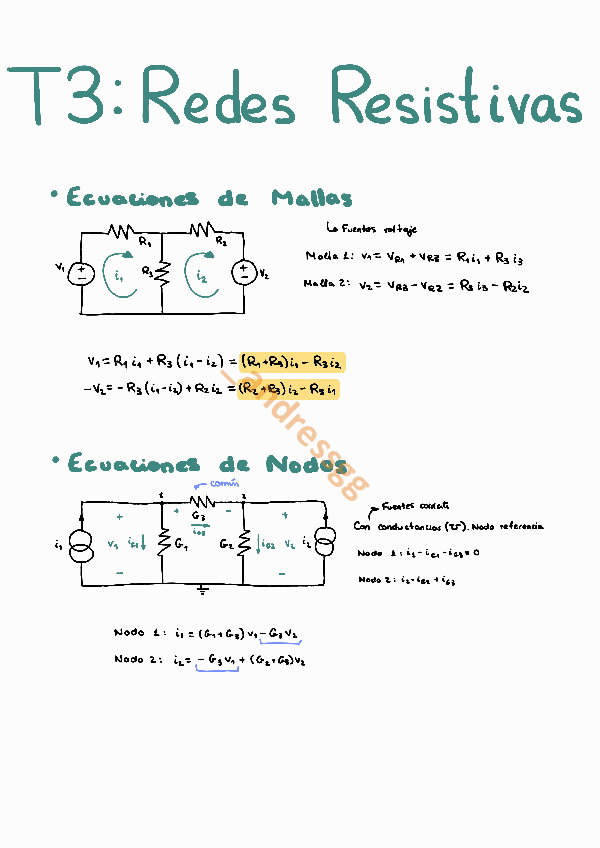 T3: Redes Resistivas
• Ecuaciones de Mallas
R1 R2
V1 + − i1 R3 i2 + − V2
↳ Fuentes voltaje
Malla 1: V1 = VR1 + VR3 = R1 i1 + R3 i3
Malla 2: V2 = VR3 − VR2 = R3 i3 − R2 i2
V1 = R1 i1 + R3 (i1 − i2) = (R1+R3) i1 − R3 i2
−V2 = −R3 (i1 − i2) + R2 i2 = (R2+R3) i2 − R3 i1
_andressgg
• Ecuaciones de Nodos
común
1 2
+ + G3 − +
iG3
i1 V1 iG1 G1 G2 iG2 V2 i2
− −
Fuentes corriente
Con conductancias (℧). Nodo referencia
Nodo 1: i1 − iG1 − iG3 = 0
Nodo 2: i2 − iG2 + iG3
Nodo 1: i1 = (G1 + G3) V1 − G3 V2
Nodo 2: i2 = − G3 V1 + (G2 + G3) V2